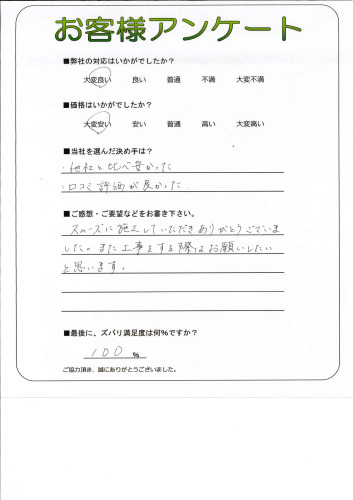 お客様アンケート
■弊社の対応はいかがでしたか？
大変良い 良い 普通 不満 大変不満
■価格はいかがでしたか？
大変安い 安い 普通 高い 大変高い
■当社を選んだ決め手は？
・他社と比べ安かった
・口コミ評価が良かった
■ご感想・ご要望などをお書き下さい。
スムーズに施工していただきありがとうございま
した。また工事をする際はお願いしたい
と思います。
■最後に、ズバリ満足度は何%ですか？
100 %
ご協力頂き、誠にありがとうございました。